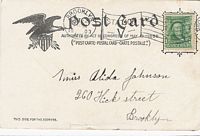 BROOKLYN
Post Card
AUTHORIZED BY ACT OF CONGRESS OF MAY 19, 1898.
("POSTAL CARD-CARTE POSTALE.")
Miss Alida Johnson
260 Hick street
Brooklyn
THIS SIDE FOR THE ADDRESS.